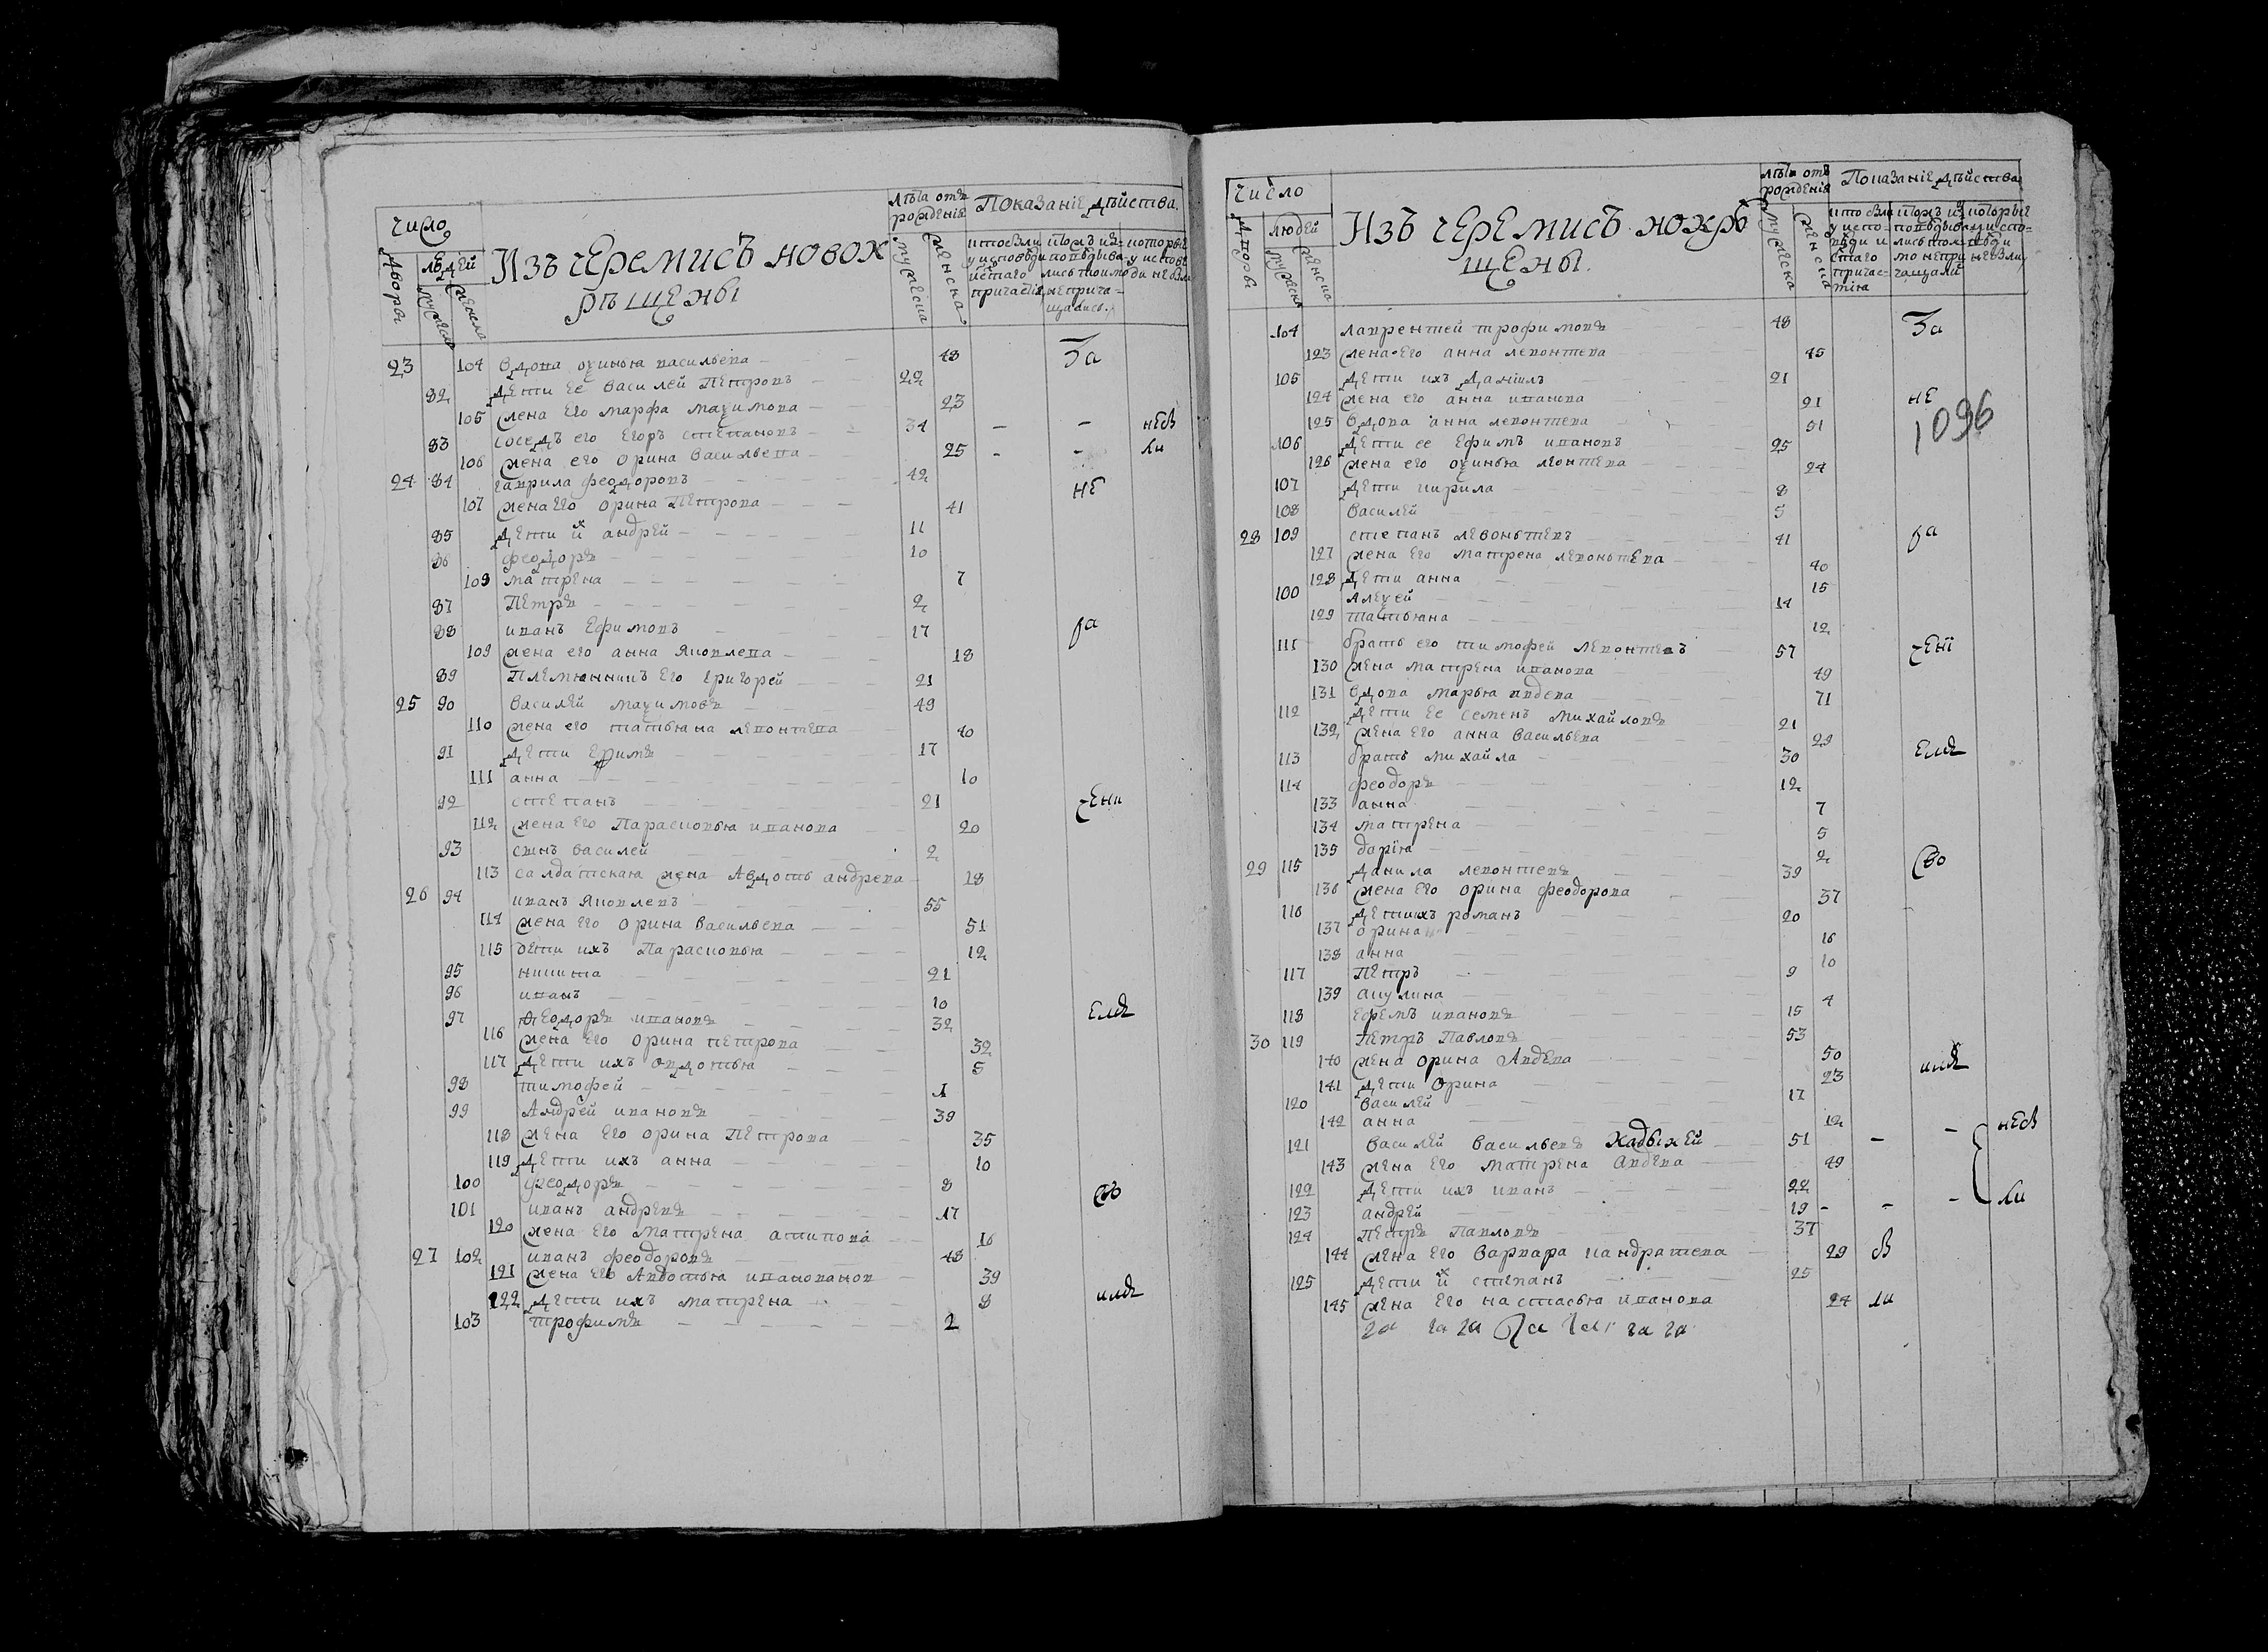 Число
Изъ черемисъ новок
рѣщены
лѣта отъ
рожденіе
Показаніе дѣйства.
Дворы
людей
мужска
женска
мужска
женска
23 104 вдова оѯинья васильева 48 За
82 дети ее василей Петровъ 22
105 жена его марфа маѯимова 23
83 соседъ его егоръ степановъ 34 – – небы
106 жена его орина васильева 25 – – ли
24 84 гаврила феодоровъ 42 не
107 жена его орина Петрова 41
85 дети их андрей 11
86 феодоръ 10
108 матрена 7
87 Петръ 2
88 иванъ ефимовъ 17 ра
109 жена его анна яковлева 18
89 Племянникъ его григорей 21
25 90 василей маѯимовъ 49
110 жена его татьяна левонтева 40
91 дети ефимъ 17
111 анна 10
92 степанъ 21 чени
112 жена его Парасковья иванова 20
93 сынъ василей 2
113 салдатская жена Авдоть андрева 18
26 94 иванъ яковлевъ 55
114 жена его орина васильева 51
115 дети ихъ Парасковья 12
95 никита 21
96 иванъ 10
97 феодоръ ивановъ 32 емъ
116 жена его орина петрова 32
117 дети ихъ овдотья 5
98 тимофей 1
99 Андрей ивановъ 39
118 жена его орина Петрова 35
119 дети ихъ анна 10
100 феодоръ 8
101 иванъ андревъ 17
120 жена его матрена антипова 16
27 102 иванъ феодоровъ 48
121 жена его Авдотья ивановановн 39
122 дети ихъ матрена 8 имъ
103 трофимъ 2
Число
Изъ черемисъ нокрѣ
щены.
лѣта отъ
рожденія
Показаніе дѣйства
Дворы
людей
мужска
женска
мужска
женска
104 лаврентей трофимовъ 48 За
123 жена его анна левонтева 45
105 дети ихъ даніилъ 21
124 жена его анна иванова 21 не
125 вдова анна левонтева 51
1096
106 дети ее ефимъ ивановъ 25
126 жена его оѯинья леонтева 24
107 дети кирила 8
108 василей 5
28 109 степанъ левоньтевъ 41 ра
127 жена его матрена левоньтева 40
128 дети анна 15
100 алеѯей 14
129 татьяна 12
111 братъ его тимофей левонтевъ 57 чені
130 жена матрена иванова 49
131 вдова марья авдева 71
112 дети ее семенъ михайловъ 21
132 жена его анна васильева 29
113 братъ михайла 30 емъ
114 феодоръ 12
133 анна 7
134 матрена 5
135 дарія 2
29 115 данила левонтевъ 39 сво
136 жена его орина феодорова 37
116 дети ихъ романъ 20
137 орина 16
138 анна 10
117 Петръ 9
139 акулина 4
118 ефремъ ивановъ 15
30 119 Петръ Павловъ 53
140 жена орина Авдева 50 имъ
141 дети орина 23
120 василей 17
142 анна 12
121 василей васильевъ 51 – – небы
143 жена его матрена авдева 49
122 дети ихъ иванъ 22
123 андрей 19 – – – ли
124 петръ Павловъ 37
144 жена его варвара кандратева 29 бы
125 дети их степанъ 25
145 жена его настасья иванова 24 ли